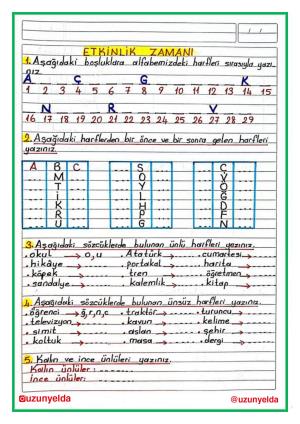 / /
ETKİNLİK ZAMANI
1. Aşağıdaki boşluklara alfabemizdeki harfleri sırasıyla yazınız.
A Ç G K
1 2 3 4 5 6 7 8 9 10 11 12 13 14 15
N R V
16 17 18 19 20 21 22 23 24 25 26 27 28 29
2. Aşağıdaki harflerden bir önce ve bir sonra gelen harfleri yazınız.
A B C Ş Ç
M O V
T Y Ö
İ I Ğ
K H D
R P F
U G N
3. Aşağıdaki sözcüklerde bulunan ünlü harfleri yazınız.
• okul → o, u • Atatürk → • cumartesi →
• hikâye → • portakal → • harita →
• köpek → • tren → • öğretmen →
• sandalye → • kalemlik → • kitap →
4. Aşağıdaki sözcüklerde bulunan ünsüz harfleri yazınız.
• öğrenci → ğ, r, n, c • traktör → • turuncu →
• televizyon → • kavun → • kelime →
• simit → • aslan → • şehir →
• koltuk → • masa → • dergi →
5. Kalın ve ince ünlüleri yazınız.
Kalın ünlüler :
İnce ünlüler :
@uzunyelda @uzunyelda